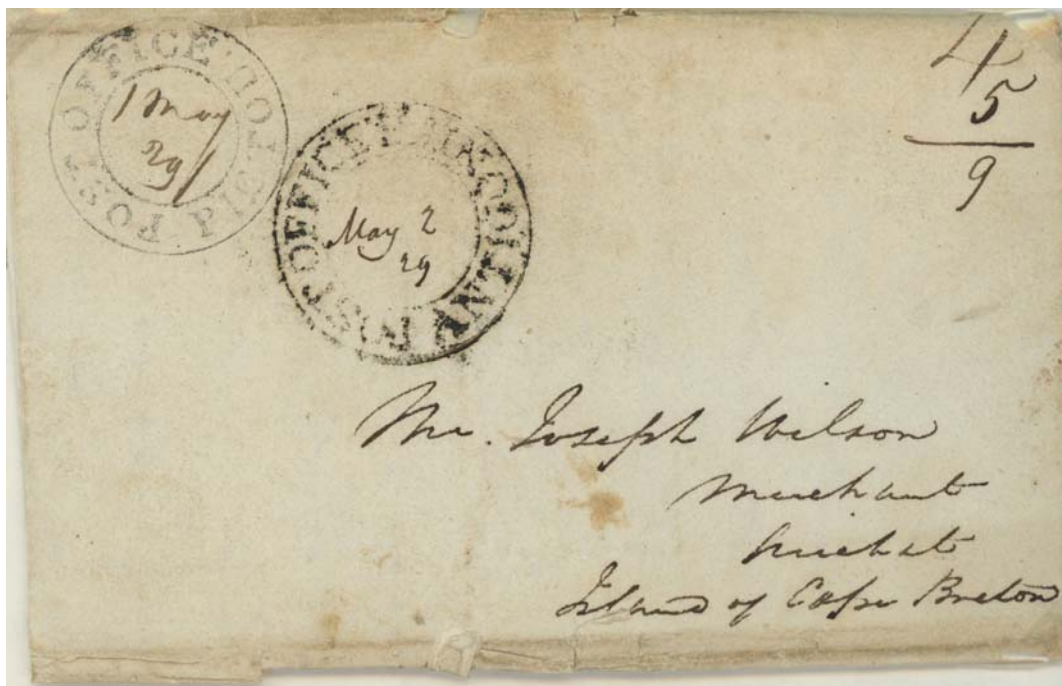 POST OFFICE PICTOU
1 May
29
POST OFFICE
May 2
29
4
5
9
Mr. Joseph Wilson
Merchant
Arichat
Island of Cape Breton